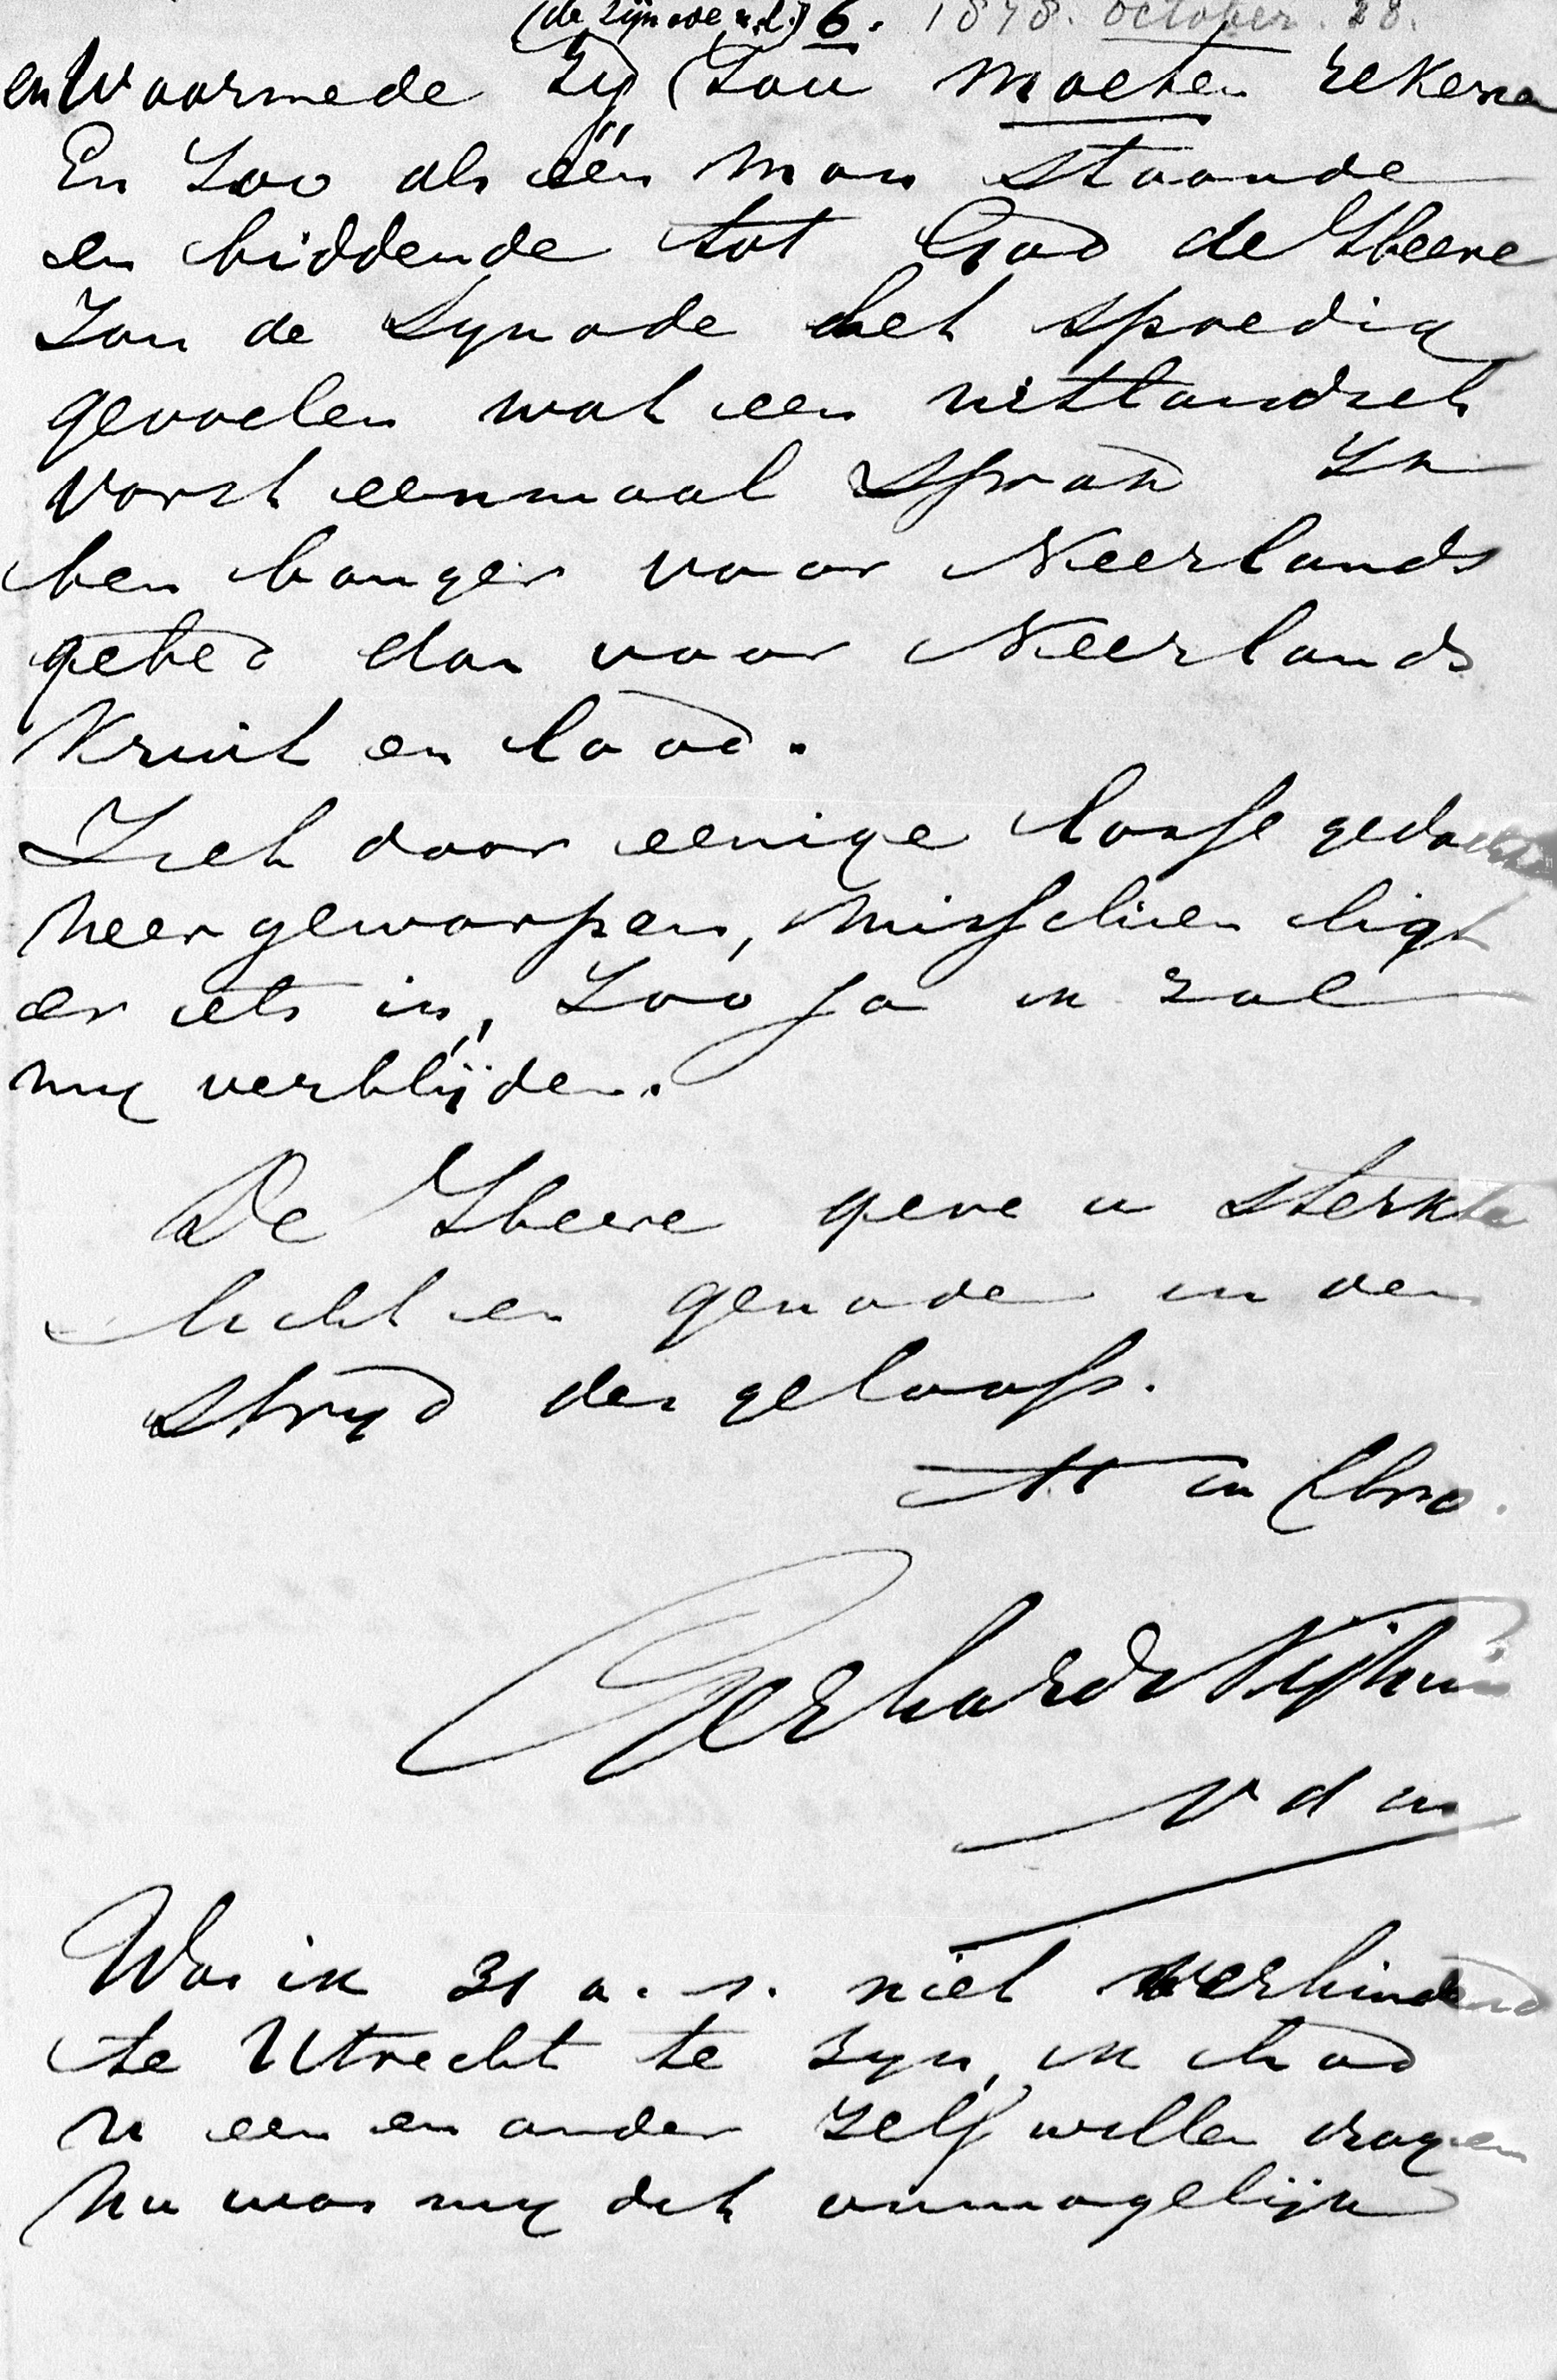 (de Synode n.l.) 6. 1878. October. 28.
en Waarmede zy Zou moeten rekenen
En Zoo als één man staande
en biddende tot God de Heere
Zou de Synode het spoedig
gevoelen wat een uitlandsch
vorst eenmaal sprak Ik
ben banger voor Neerlands
gebed dan voor Neerlands
Kruit en lood.
Ziet door eenige losse gedachten
neergeworpen, misschien ligt
er iets in, Zoo ja ik zal
my verblijden.
De Heere geve u sterkte
licht en genade in den
stryd des geloofs.
tt in Chro.
Gerhards Nijhuis
v d m
Was ik 31 a. s. niet verhinderd
te Utrecht te zyn, ik had
u een en ander zelf willen vragen
Nu was my dit onmogelijk